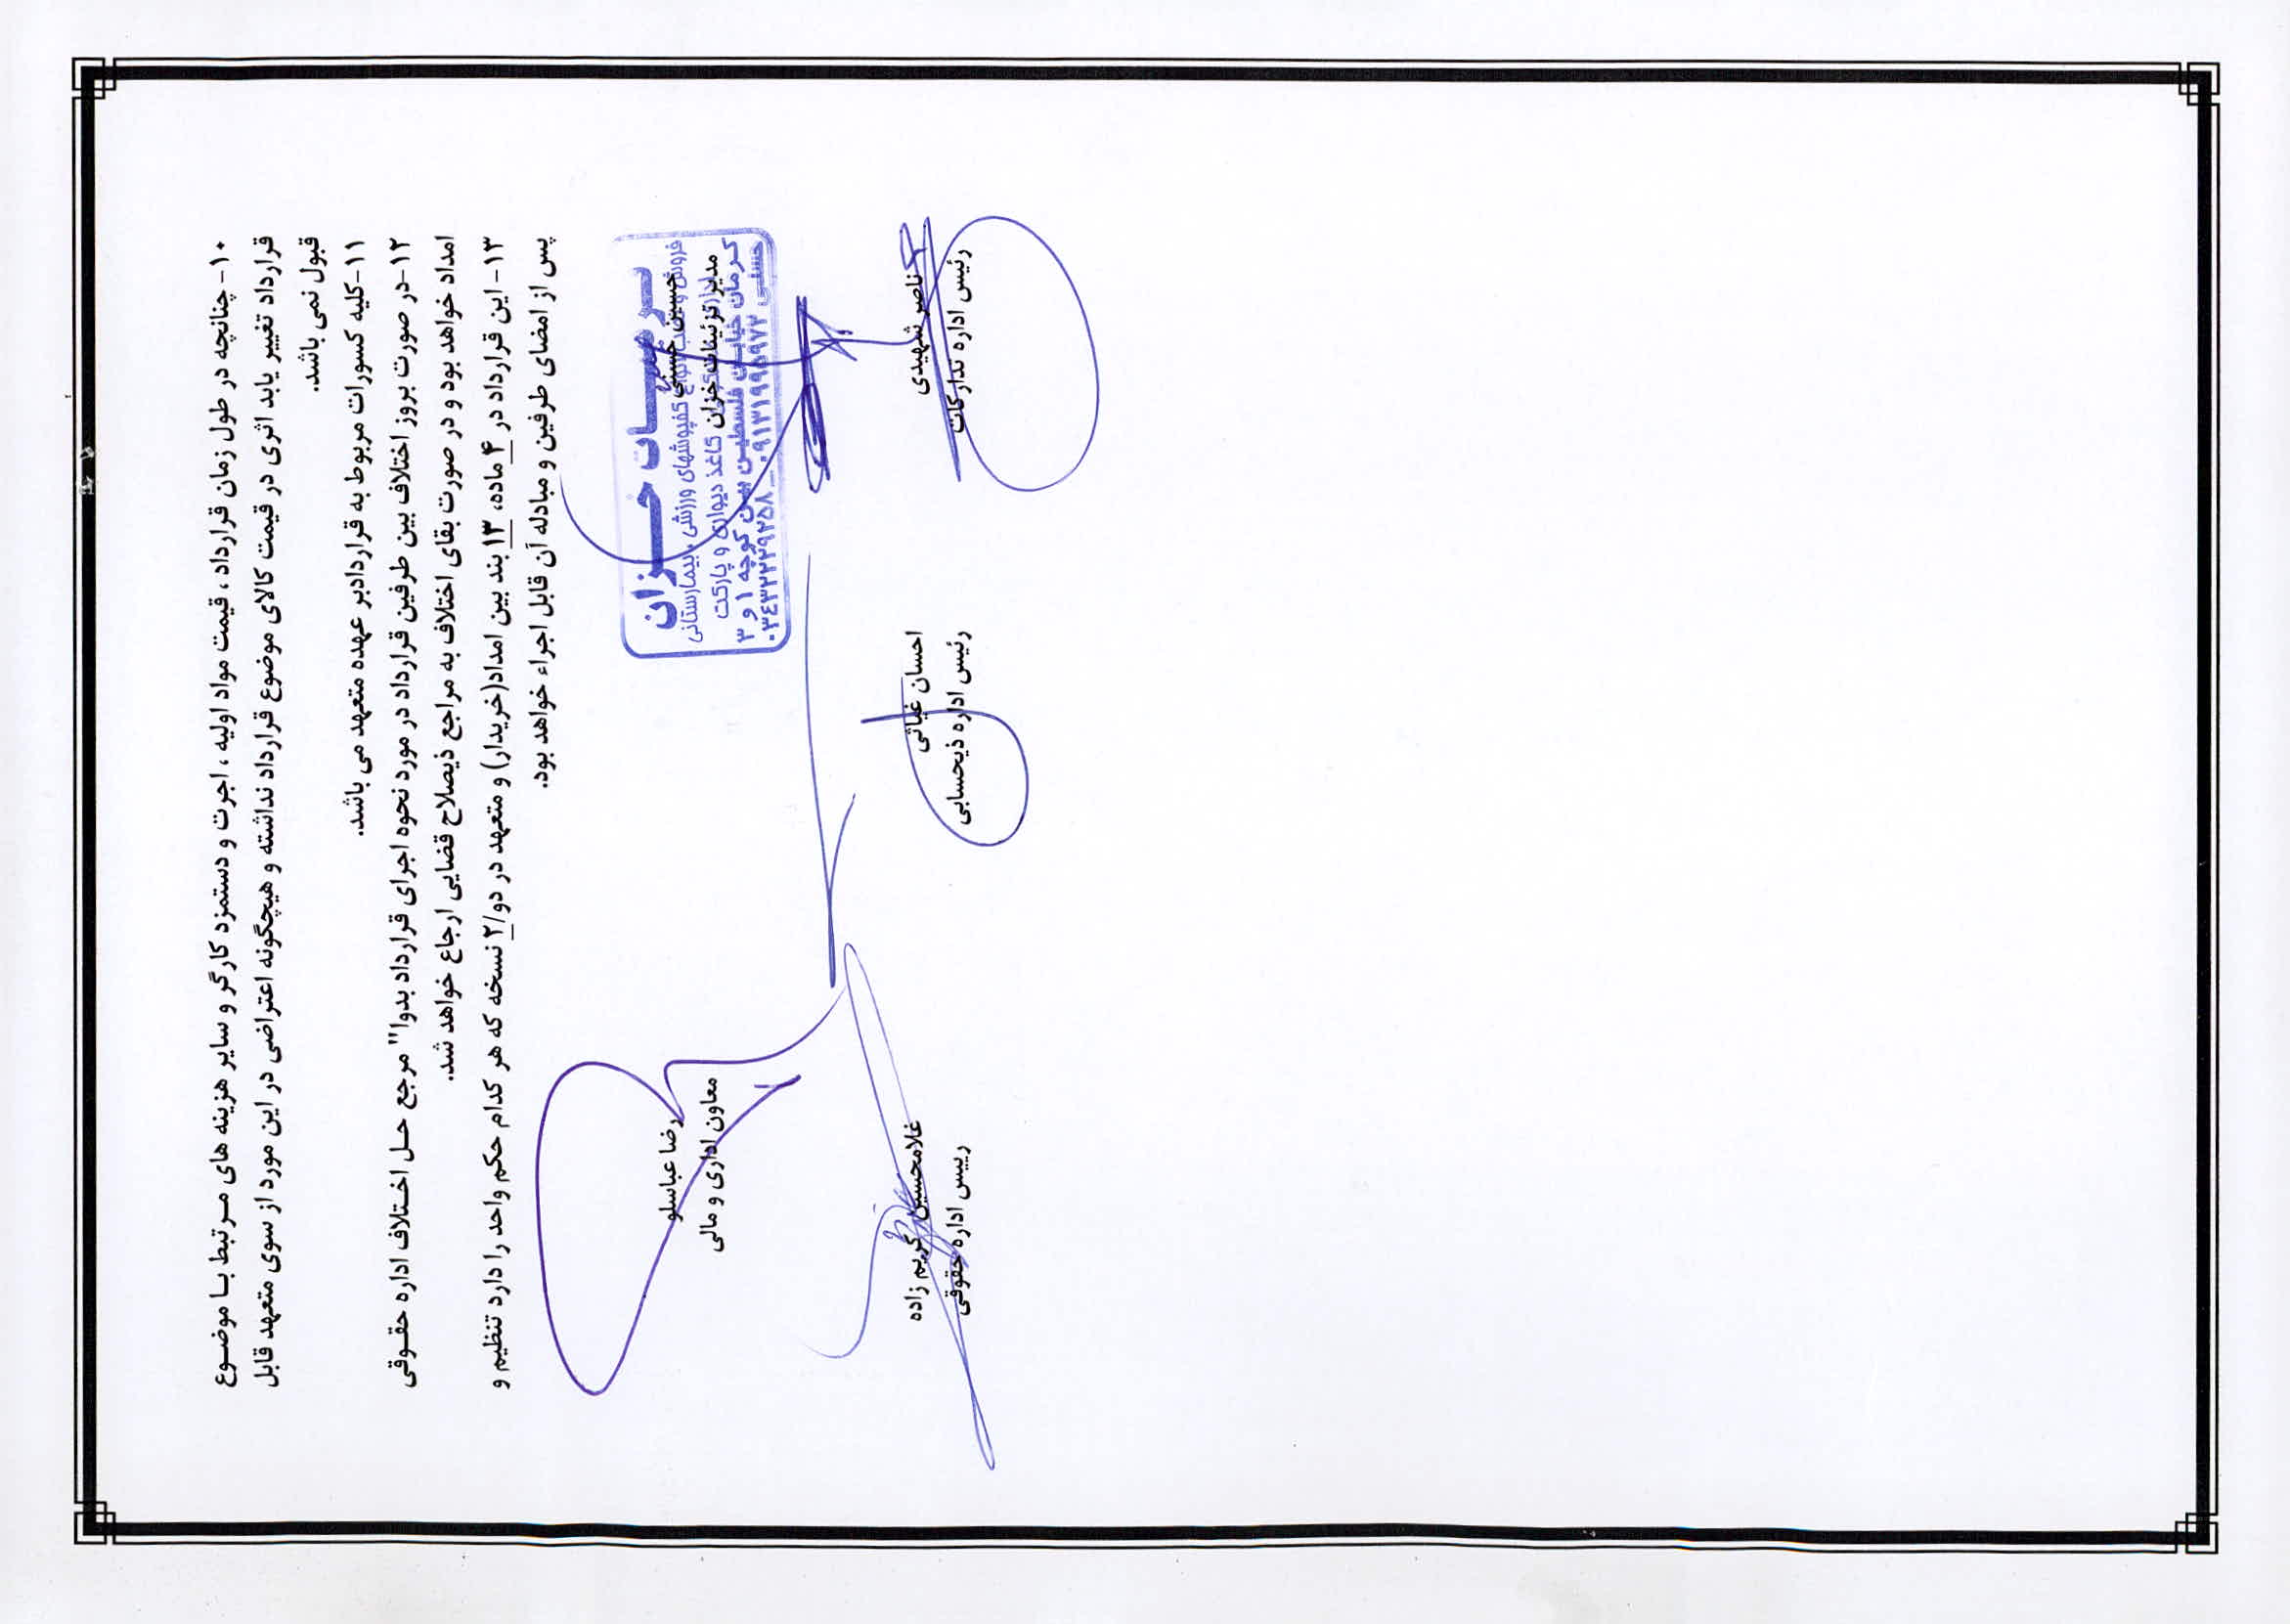 ۱۰- چنانچه در طول زمان قرارداد، قیمت مواد اولیه ، اجرت و دستمزد کارگر و سایر هزینه های مرتبط با موضوع
قرارداد تغییر یابد اثری در قیمت کالای موضوع قرارداد نداشته و هیچگونه اعتراضی در این مورد از سوی متعهد قابل
قبول نمی باشد.
۱۱-کلیه کسورات مربوط به قراردادبر عهده متعهد می باشد.
۱۲-در صورت بروز اختلاف بین طرفین قرارداد در مورد نحوه اجرای قرارداد بدوا" مرجع حل اختلاف اداره حقوقی
امداد خواهد بود و در صورت بقای اختلاف به مراجع ذیصلاح قضایی ارجاع خواهد شد.
۱۳- این قرارداد در ۴ ماده، ۱۳ بند بین امداد(خریدار) و متعهد در دو/۲ نسخه که هر کدام حکم واحد را دارد تنظیم و
پس از امضای طرفین و مبادله آن قابل اجراء خواهد بود.
خزان
فروش و نصب انواع کفپوشهای ورزشی ، بیمارستانی
کاغذ دیواری و پارکت
کرمان خیابان فلسطین بین کوچه ۱ و ۳
۰۳۴۳۲۲۲۹۲۵۸ _
حسین حسنی
مدیر تزئینات خزان
رضا عباسلو
معاون اداری و مالی
ناصر شهیدی
رئیس اداره تدارکات
احسان غیاثی
رئیس اداره ذیحسابی
غلامحسین کریم زاده
رییس اداره حقوقی